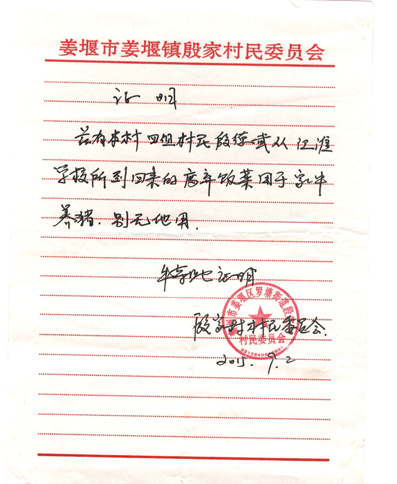 姜堰市姜堰镇殷家村民委员会
证 明
兹有本村四组村民段德武从江淮
学校所到回来的废弃饭菜用于家中
养猪，别无他用。
特此证明
殷家村村民委员会
村民委员会
2015.9.2